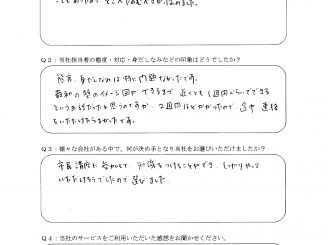 Q2：当社担当者の態度・対応・身だしなみなどの印象はどうでしたか？
態度、身だしなみは特に問題なかったです。
最初の 型のイメージ図ができるまで 近くても1週間くらいでできる
というお話だったと思うのですが、2週間ほどかかったので 途中 連絡
をいただけたらよかったです。
Q3：様々な会社がある中で、何が決め手となり当社をお選びいただけましたか？
市民講座に参加して、知識をつけることができ、しっかりやって
いただけそうでしたので 選びました
Q4：当社のサービスをご利用いただいた感想をお聞かせください。